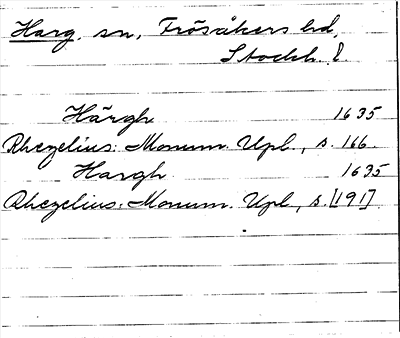 Harg, sn, Frösåkers hd,
Stockh. l.
Härgh 1635
Rhezelius: Monum. Upl., s. 166.
Hargh 1635
Rhezelius: Monum. Upl., s. [191]